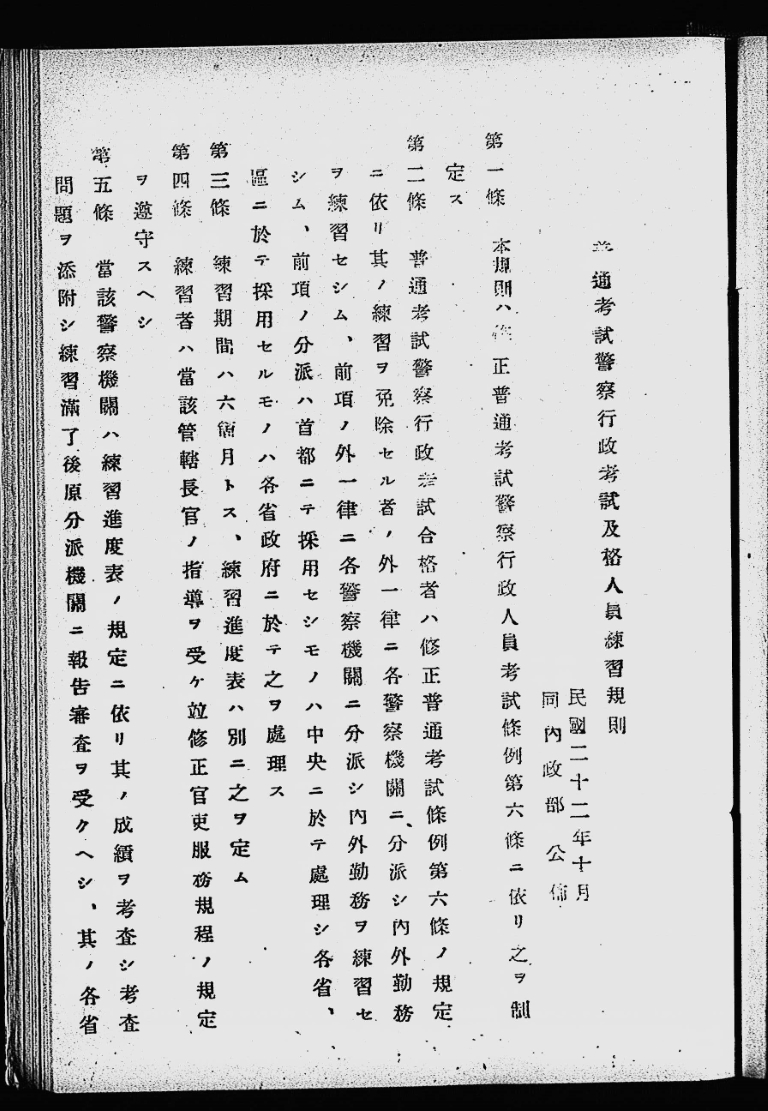 普通考試警察行政考試及格人員練習規則
民國二十二年十月
同內政部公佈
第一條　本規則ハ修正普通考試警察行政人員考試條例第六條ニ依リ之ヲ制
定ス
第二條　普通考試警察行政考試合格者ハ修正普通考試條例第六條ノ規定
ニ依リ其ノ練習ヲ免除セル者ノ外一律ニ各警察機關ニ分派シ內外勤務
ヲ練習セシム、前項ノ外一律ニ各警察機關ニ分派シ內外勤務ヲ練習セ
シム、前項ノ分派ハ首都ニテ採用セシモノハ中央ニ於テ處理シ各省、
區ニ於テ採用セルモノハ各省政府ニ於テ之ヲ處理ス
第三條　練習期間ハ六個月トス、練習進度表ハ別ニ之ヲ定ム
第四條　練習者ハ當該管轄長官ノ指導ヲ受ケ竝修正官吏服務規程ノ規定
ヲ遵守スヘシ
第五條　當該警察機關ハ練習進度表ノ規定ニ依リ其ノ成績ヲ考査シ考査
問題ヲ添附シ練習滿了後原分派機關ニ報告審査ヲ受クヘシ、其ノ各省